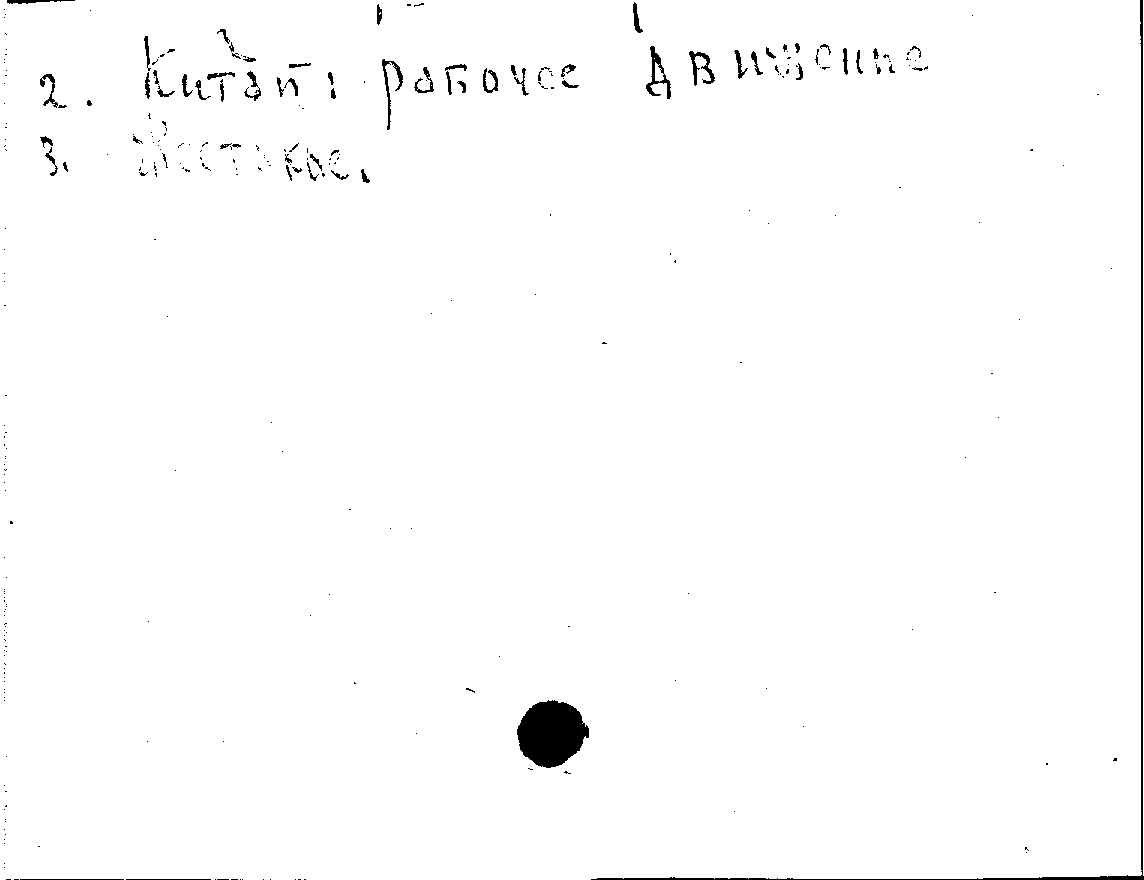 2. Китай: рабочее движение
3. Жестокое.